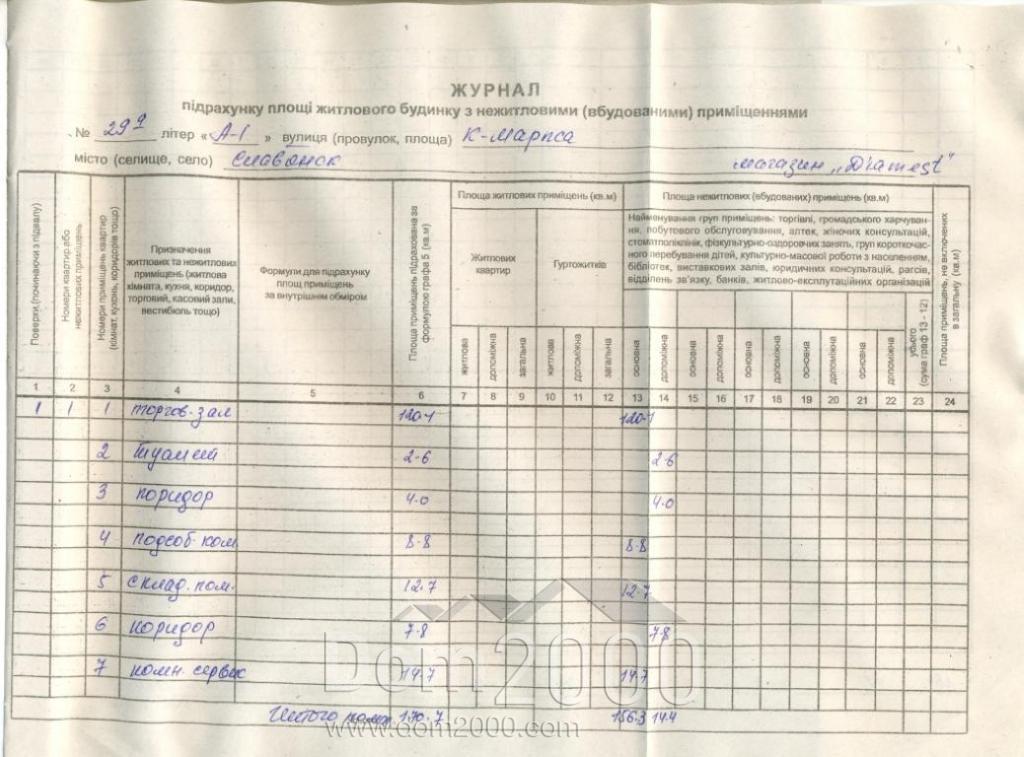 ЖУРНАЛ
підрахунку площі житлового будинку з нежитловими (вбудованими) приміщеннями
№ 29а літер « А-1 » вулиця (провулок, площа) К-Маркса
місто (селище, село) Славянск магазин „Diamest"
Поверхи (починаючи з підвалу)
Номери квартир або нежитлових приміщень
Номери приміщень квартир (кімнат, кухонь, коридорів тощо)
Призначення
житлових та нежитлових
приміщень (житлова
кімната, кухня, коридор,
торговий, касовий зали,
вестибюль тощо)
Формули для підрахунку
площ приміщень
за внутрішнім обміром
Площа приміщень підрахована за формулою графа 5 (кв.м)
Площа житлових приміщень (кв.м)
Житлових
квартир
Гуртожитків
житлова допоміжна загальна житлова допоміжна загальна
Площа нежитлових (вбудованих) приміщень (кв.м)
Найменування груп приміщень: торгівлі, громадського харчуван-
ня, побутового обслуговування, аптек, жіночих консультацій,
стоматполіклінік, фізкультурно-оздоровчих занять, груп короткочас-
ного перебування дітей, культурно-масової роботи з населенням,
бібліотек, виставкових залів, юридичних консультацій, рагсів,
відділень зв'язку, банків, житлово-експлутаційних організацій
основна допоміжна основна допоміжна основна допоміжна основна допоміжна основна допоміжна
усього (сума граф 13 - 12)
Площа приміщень, не включених в загальну (кв.м)
1 2 3 4 5 6 7 8 9 10 11 12 13 14 15 16 17 18 19 20 21 22 23 24
1 1 1 торгов. зал 120.1 120.1
2 туалет 2.6 2.6
3 коридор 4.0 4.0
4 подсоб. ком. 8.8 8.8
5 склад. пом. 12.7 12.7
6 коридор 7.8 7.8
7 комн. сервис 14.7 14.7
170.7 156.3 14.4
Dom2000
www.dom2000.com